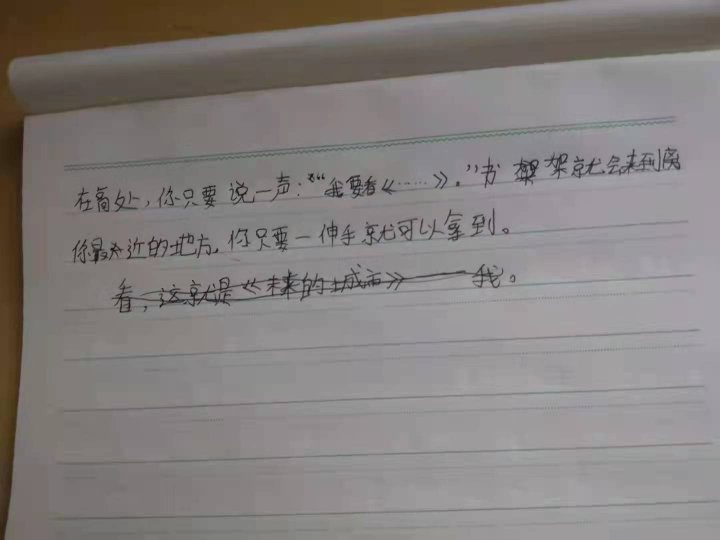 在高处，你只要说一声：“我要看《……》。”书架就会来到离
你最近的地方，你只要一伸手就可以拿到。
看，这就是《未来的城市》——我。